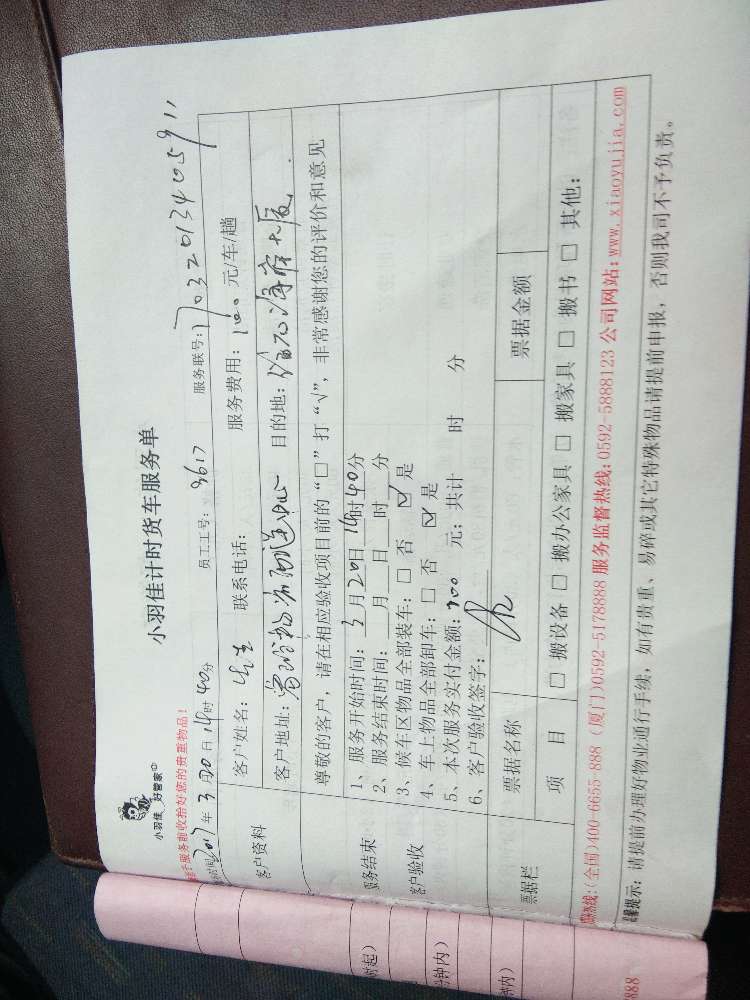 小羽佳 好管家
小羽佳计时货车服务单
服务前收拾好您的贵重物品!
2017年3月20日14时40分 员工工号: 9617 服务联号: 1703201340591
客户资料
客户姓名: 联系电话: 服务费用: 元/车/趟
客户地址: 目的地:
尊敬的客户,请在相应验收项目前的“□”打“√”,非常感谢您的评价和意见
服务结束
客户验收
1、服务开始时间: 3月20日14时40分
2、服务结束时间: 月 日 时 分
3、候车区物品全部装车: □ 否 ☑ 是
4、车上物品全部卸车: □ 否 ☑ 是
5、本次服务实付金额: 元; 共计 时 分
6、客户验收签字:
票据栏
票据名称 票据金额
项 目 □ 搬设备 □ 搬办公家具 □ 搬家具 □ 搬书 □ 其他:
热线:(全国)400-6655-888 (厦门)0592-5178888 服务监督热线:0592-5888123 公司网站: www.xiaoyujia.com
提示: 请提前办理好物业通行手续, 如有贵重、易碎或其它特殊物品请提前申报, 否则我司不予负责。
时起)
分钟内)
钟内)
888